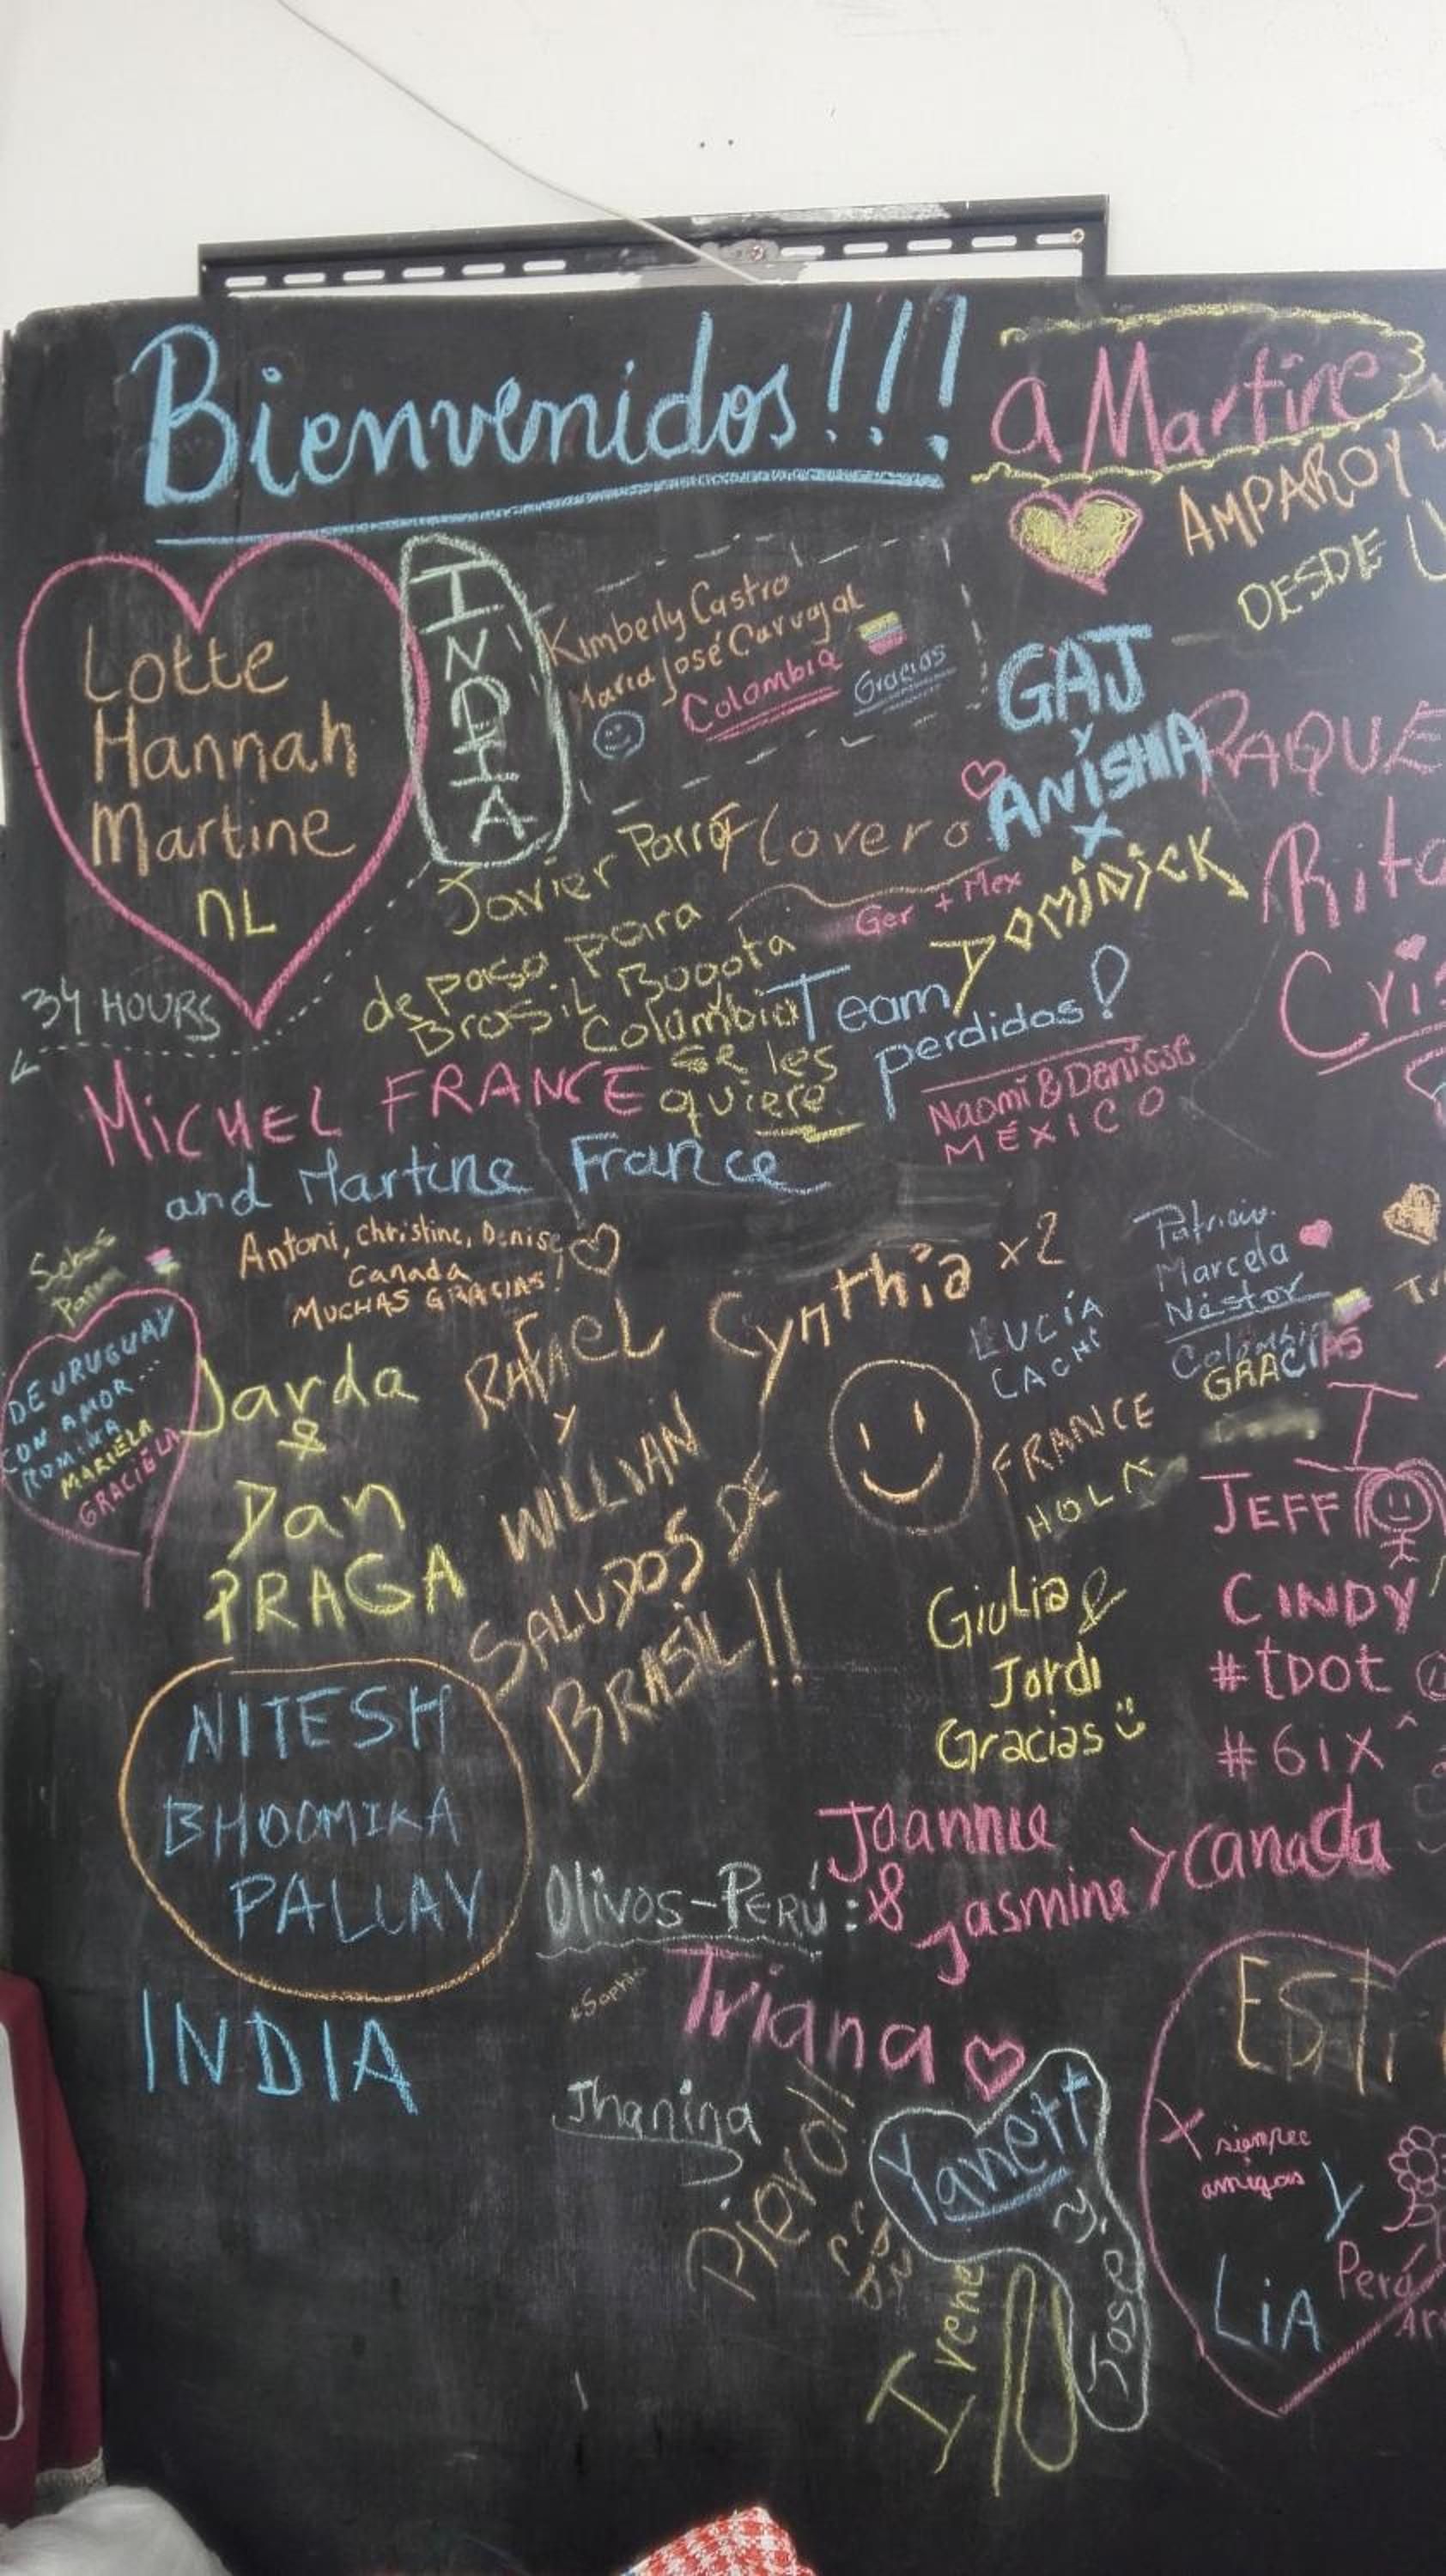 Bienvenidos!!!
a Martine
AMPARO y
DESDE
Lotte
Hannah
Martine
NL
INDIA
34 HOURS
Kimberly Castro
María José Carvajal
Colombia
Gracias
GAJ
y
ANISHA
x
DOMINICK
RAQUE
Rita
Cris
Javier Parra
de paso para
Brasil Bogota
Colombia
se les
quiere
Flovero
Ger + Mex
Team
perdidas!
Naomi & Denisse
MÉXICO
MICHEL FRANCE
and Martine France
Antoni, Christine, Denise
Canada
MUCHAS GRACIAS!
Sebas
DE URUGUAY
CON AMOR...
ROMINA
MARIELA
GRACIELA
Jarda
&
Dan
PRAGA
RAFAEL
y
WILLIAN
SALUDOS DE
BRASIL!!
Cynthia x2
LUCÍA
CACHI
FRANCE
HOLA
Patricia.
Marcela
Néstor
Colombia
GRACIAS
I
JEFF
CINDY
#tDOT
#6ix
Giulia &
Jordi
Gracias
NITESH
BHOOMIKA
PALLAV
INDIA
Joannie
&
Jasmine > Canada
Olivos-PERÚ:
Sophia
Triana
Jhanina
Pierol
Yanett
y
Jose
Irene
EST
x siempre
amigas
y
LiA
Perú